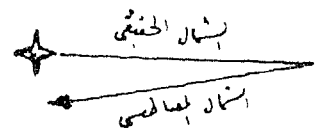 الشمال الحقيقي
الشمال المغناطيسي